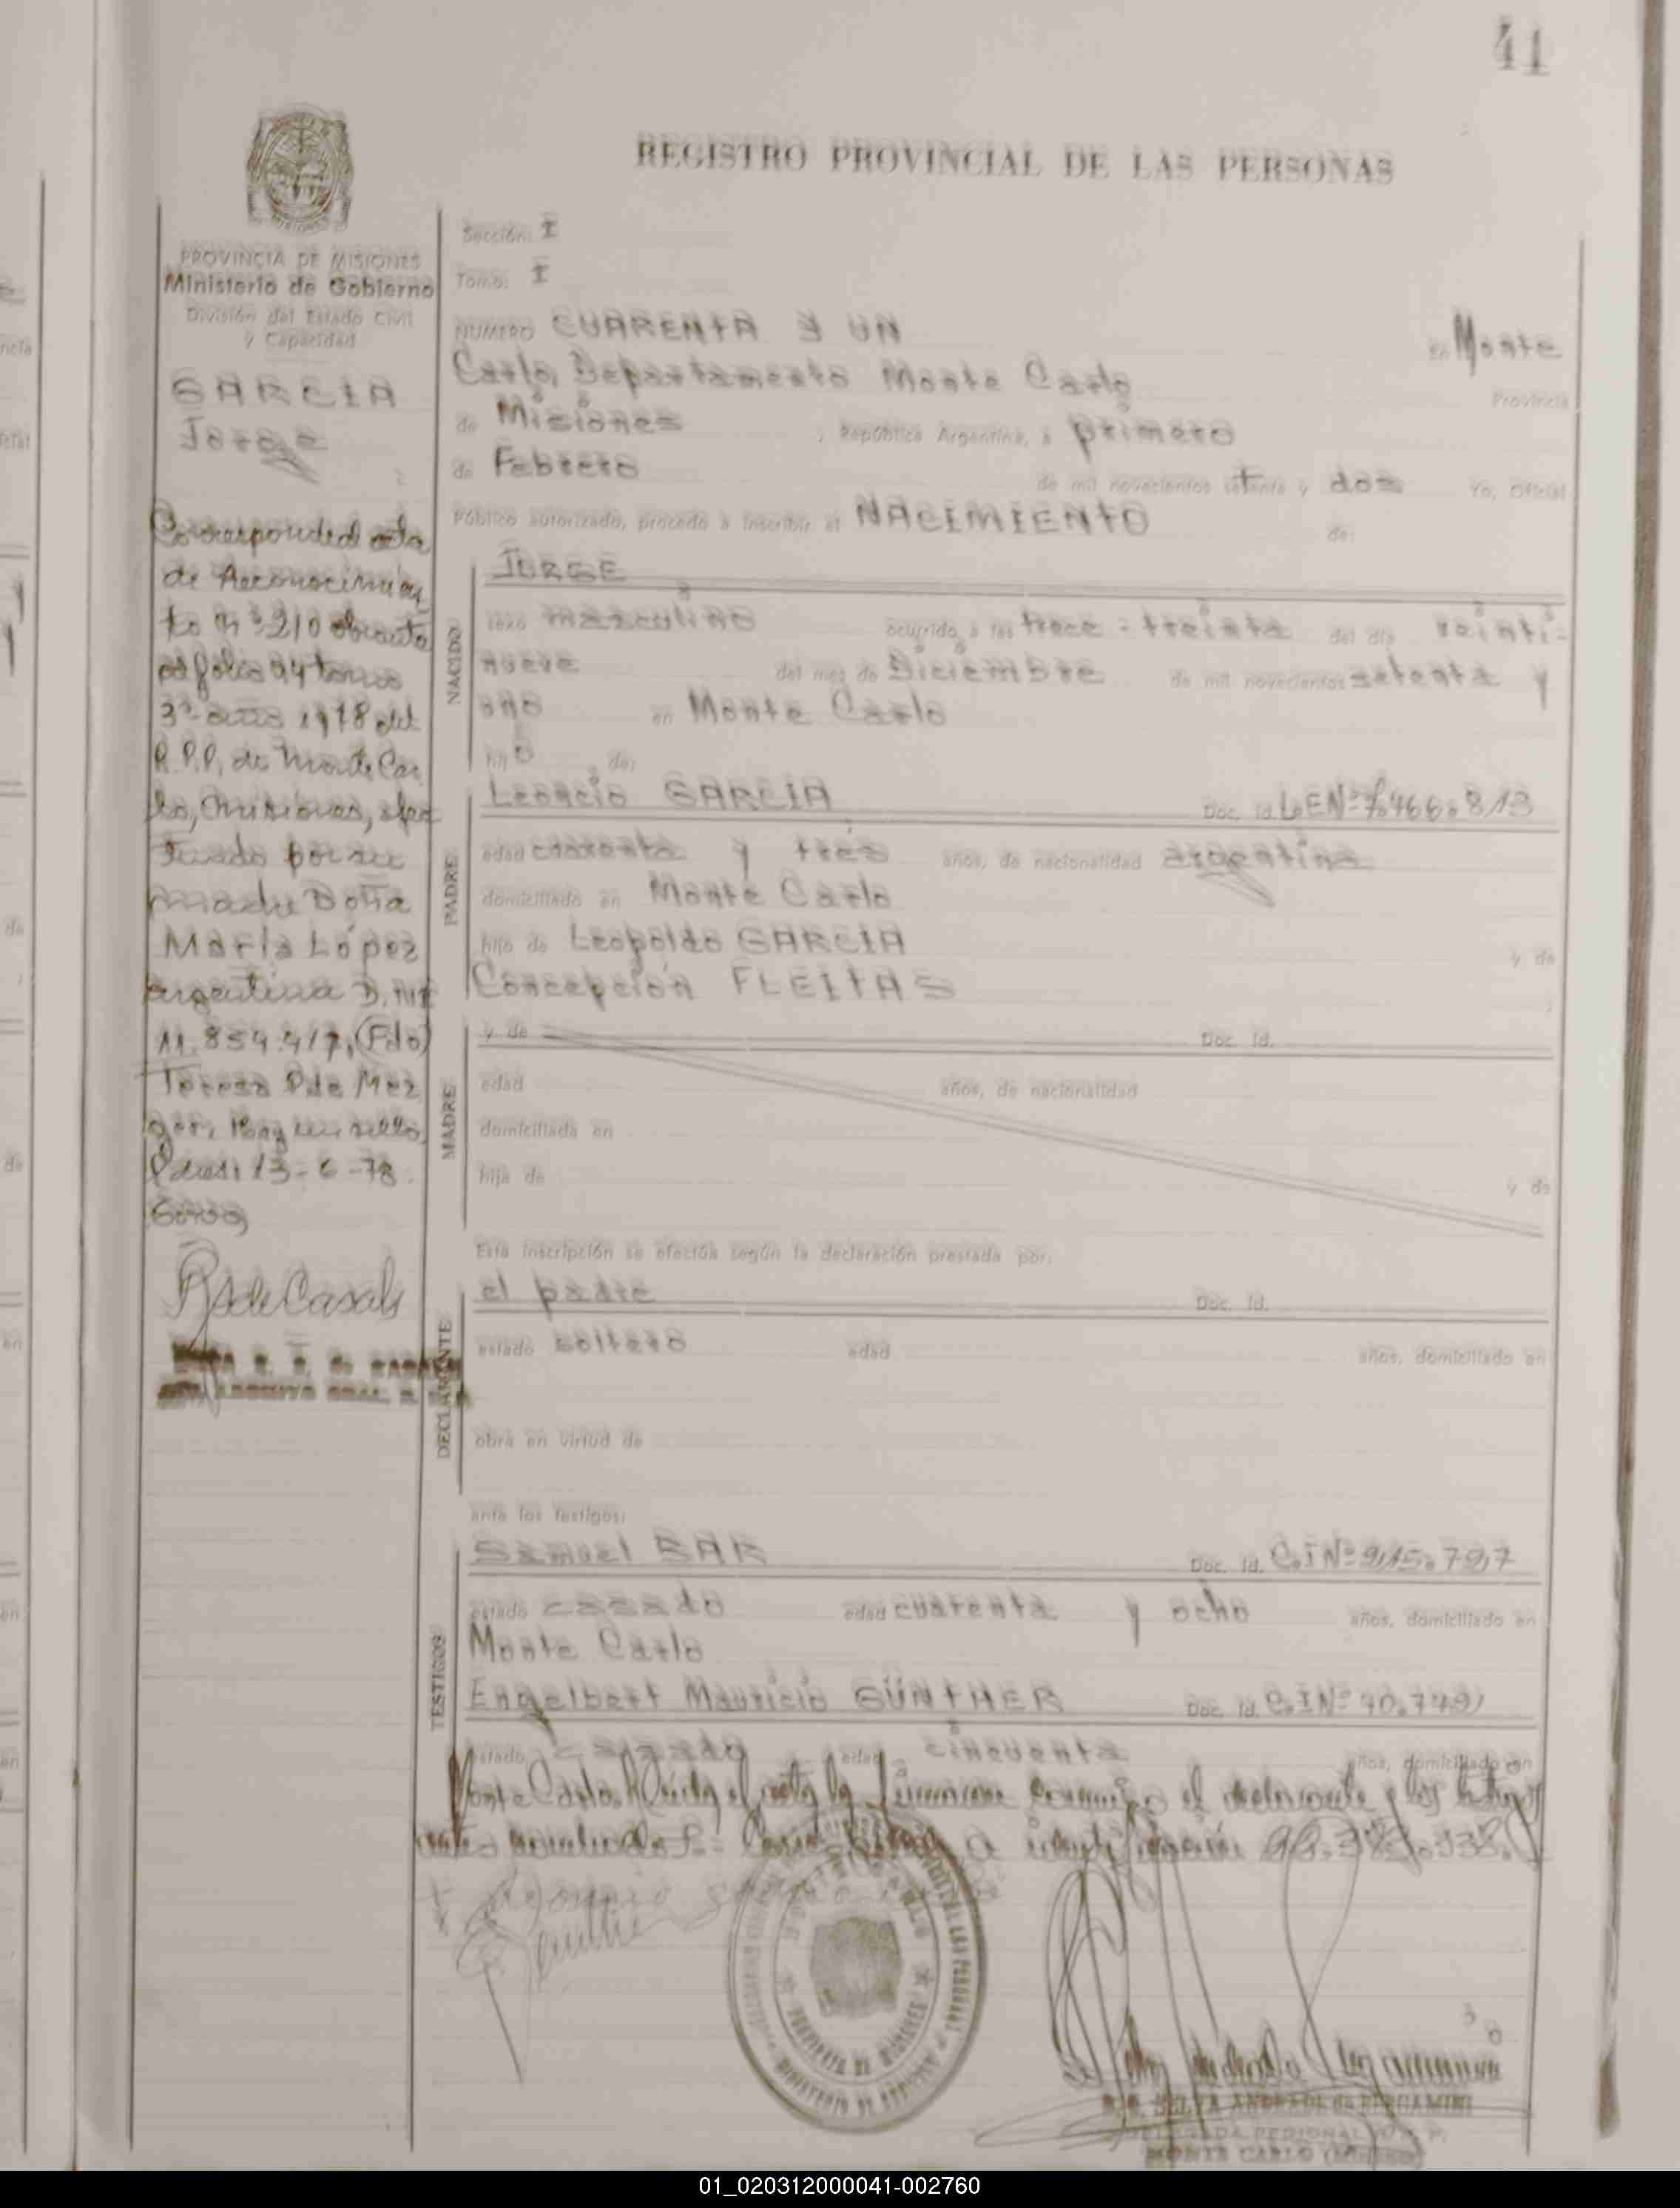 41
REGISTRO PROVINCIAL DE LAS PERSONAS
PROVINCIA DE MISIONES
Ministerio de Gobierno
División del Estado Civil
y Capacidad
GARCIA
Jorge
Corresponde al acta
de Reconocimien
to Nº 210 obrante
al folio 94 tomo
3º año 1978 del
R.P.P. de Monte Car
lo, Misiones, efec
tuado por su
madre Doña
María López
argentina D.NI
11.854.417, (Fdo)
Teresa P de Mez
Hay un sello,
13-6-78.
Sección: I
Tomo: I
NUMERO CUARENTA Y UN en Monte
Carlo, Departamento Monte Carlo Provincia
de Misiones, República Argentina, a primero
de Febrero de mil novecientos setenta y dos Yo, Oficial
Público autorizado, procedo a inscribir el NACIMIENTO de:
NACIDO
JORGE
sexo masculino ocurrido a las trece = treinta del día veinti=
nueve del mes de Diciembre de mil novecientos setenta y
uno en Monte Carlo
hijo de:
PADRE
Leoncio GARCIA Doc. Id. L.E Nº 7.466.813
edad cuarenta y tres años, de nacionalidad argentina
domiciliado en Monte Carlo
hijo de Leopoldo GARCIA y de
Concepción FLEITAS
MADRE
y de Doc. Id.
edad años, de nacionalidad
domiciliada en
hija de y de
Esta inscripción se efectúa según la declaración prestada por:
DECLARANTE
el padre Doc. Id.
estado soltero edad años, domiciliado en
obra en virtud de
ante los testigos:
TESTIGOS
Samuel BAR Doc. Id. C.I Nº 915.797
estado casado edad cuarenta y ocho años, domiciliado en
Monte Carlo
Engelbert Mauricio GÜNTHER Doc. Id. C.I Nº 40.749
estado casado edad cincuenta años, domiciliado en
Monte Carlo. Leída el acta la firmaron conmigo el declarante y los testigos
MONTE CARLO
PROVINCIA DE MISIONES
MINISTERIO DE GOBIERNO
DELIA ANDRADE de BERGAMINI
DELEGADA REGIONAL
MONTE CARLO (Misiones)
01_020312000041-002760